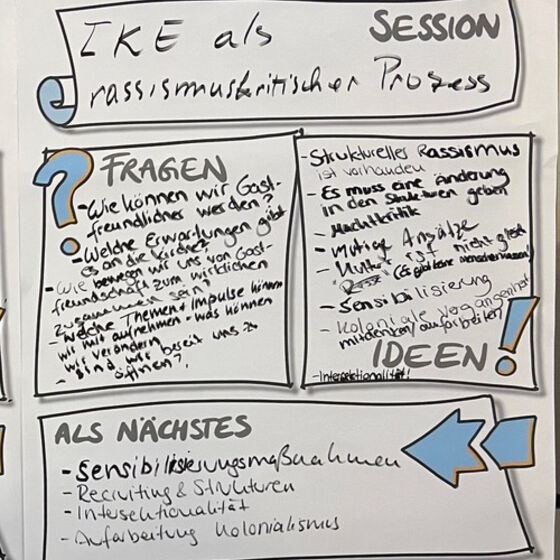 IKE als
SESSION
rassismuskritischer Prozess
FRAGEN
- Wie können wir Gast-
freundlicher werden?
- Welche Erwartungen gibt
es an die Kirche?
- Wie bewegen wir uns von Gast-
freundschaft zum wirklichen
zusammen sein?
- Welche Themen + Impulse können
wir mit aufnehmen - was können
wir verändern
- Sind wir bereit uns zu
öffnen?
- Strukturelles Rassismus
ist vorhanden
- Es muss eine änderung
in den Strukturen geben
- Machtkritik
- Mutige Ansätze
- Kultur ist nicht gleich
"Rasse" (Es gibt keine Menschenrassen!)
- Sensibilisierung
- Koloniale Vergangenheit
mitdenken/aufarbeiten
IDEEN
- Intersektionalität!
ALS NÄCHSTES
- Sensibilisierungsmaßnahmen
- Recruiting & Strukturen
- Intersektionalität
- Aufarbeitung Kolonialismus